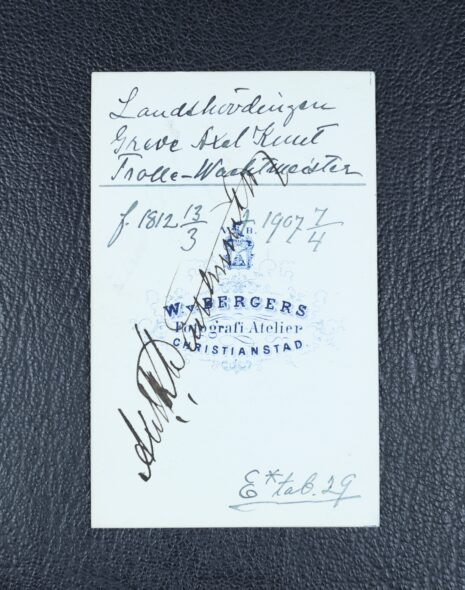 Landshövdingen
Greve Axel Knut
Trolle-Wachtmeister
f. 1812 13/3 † 1907 7/4
B.
W. v BERGERS
Fotografi Atelier
CHRISTIANSTAD.
E* tab. 29